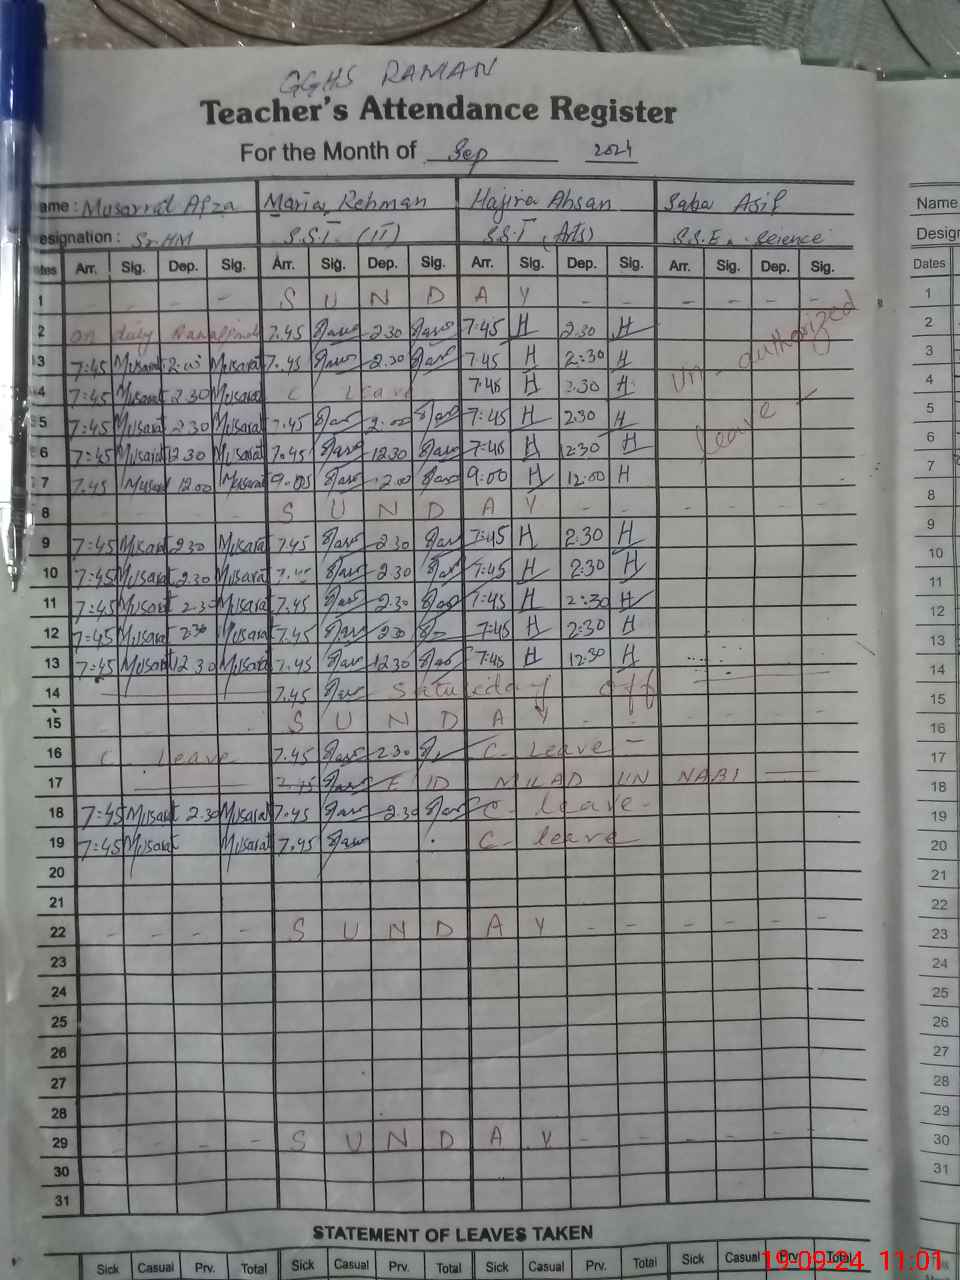 GGHS RAMAN
Teacher's Attendance Register
For the Month of Sep 2024
ame : Musarrat Afza Maria Rehman Hajira Ahsan Saba Asif Name
esignation : Sr.HM S.S.T. (IT) S.S.T (Arts) S.S.E. Science Design
tes Arr. Sig. Dep. Sig. Arr. Sig. Dep. Sig. Arr. Sig. Dep. Sig. Arr. Sig. Dep. Sig. Dates
1 - - - - S U N D A Y - - - - - - 1
2 on duty 7.45 2.30 7:45 H 2.30 H 2
3 7:45 Musarat Musarat 7.45 2.30 7:45 H 2:30 H un-authorized 3
4 7:45 Musarat 2.30 Musarat C Leave 7:45 H 2.30 H 4
5 7:45 Musarat 2.30 Musarat 7.45 2.00 7:45 H 2.30 H leave - 5
6 7:45 Musarat 12.30 Musarat 7.45 12.30 7:45 H 12:30 H 6
7 7.45 Musarat 12.00 Musarat 12.00 9:00 H 12:00 H 7
8 S U N D A Y 8
9 7:45 Musarat 2.30 Musarat 7.45 2.30 7:45 H 2:30 H 9
10 7:45 Musarat 2.30 Musarat 7.45 2.30 7:45 H 2:30 H 10
11 7:45 Musarat 2.30 Musarat 7.45 2.30 7:45 H 2:30 H 11
12 7:45 Musarat 2.30 Musarat 7.45 2.30 7:45 H 2:30 H 12
13 7:45 Musarat 12.30 Musarat 7.45 12.30 7:45 H 12:30 H 13
14 7.45 Saturday off 14
15 S U N D A Y 15
16 C Leave 7.45 2.30 C- Leave - 16
17 7.45 EID MILAD UN NABI 17
18 7:45 Musarat 2.30 Musarat 7.45 2.30 C- leave - 18
19 7:45 Musarat Musarat 7.45 C- leave 19
20 20
21 21
22 - - - - S U N D A Y - - - - - - 22
23 23
24 24
25 25
26 26
27 27
28 28
29 - - - - S U N D A Y - - - - - - 29
30 30
31 31
STATEMENT OF LEAVES TAKEN
Sick Casual Prv. Total Sick Casual Prv. Total Sick Casual Prv. Total Sick Casual Prv. Total Sick
19-09-24 11:01